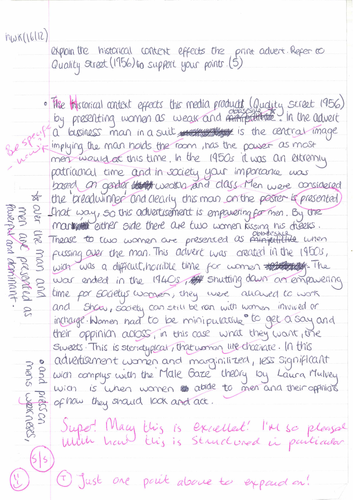 HWK(16/12)
explain the historical context effects the print advert. Refer to
Quality Street (1956) to support your points (5)
• The Historical context effects this media product (Quality street 1956)
by presenting women as weak and . In the advert
a business man in a suit is the central image
implying the man holds the room, has the power as most
men would at this time. In the 1950s it was an extremly
patriarchal time and in society your importance was
based on gender wealth and class. Men were considered
the breadwinner and clearly this man on the poster is presented
that way, so this advertisement is empowering for men. By the
man either side there are two women kissing his cheeks.
These to two women are presented as when
fussing over the man. This advert was created in the 1950s,
wich was a difficult, horrible time for women . The
war ended in the 1940s, shutting down an empowering
time for societys women, they were allowed to work
and show, society can still be ran with women involved or
incharge. Women had to be minipulative to get a say and
their oppinion across, in this case what they want, the
sweets. This is stereotypical, that women like choclate. In this
advertisement women and marginilited, less significant
wich complys with the Male Gaze theory by Laura Mulvey
wich is when women abide to men and their oppinions
of how they should look and act.
Be specific
* over the man and
men are presented as
powerful and dominant.
• and press on
mans weaknesses,
Super! Many this is excellent! I'm so pleased
with how this is structured in particular
5/5
T Just one point above to expand on!